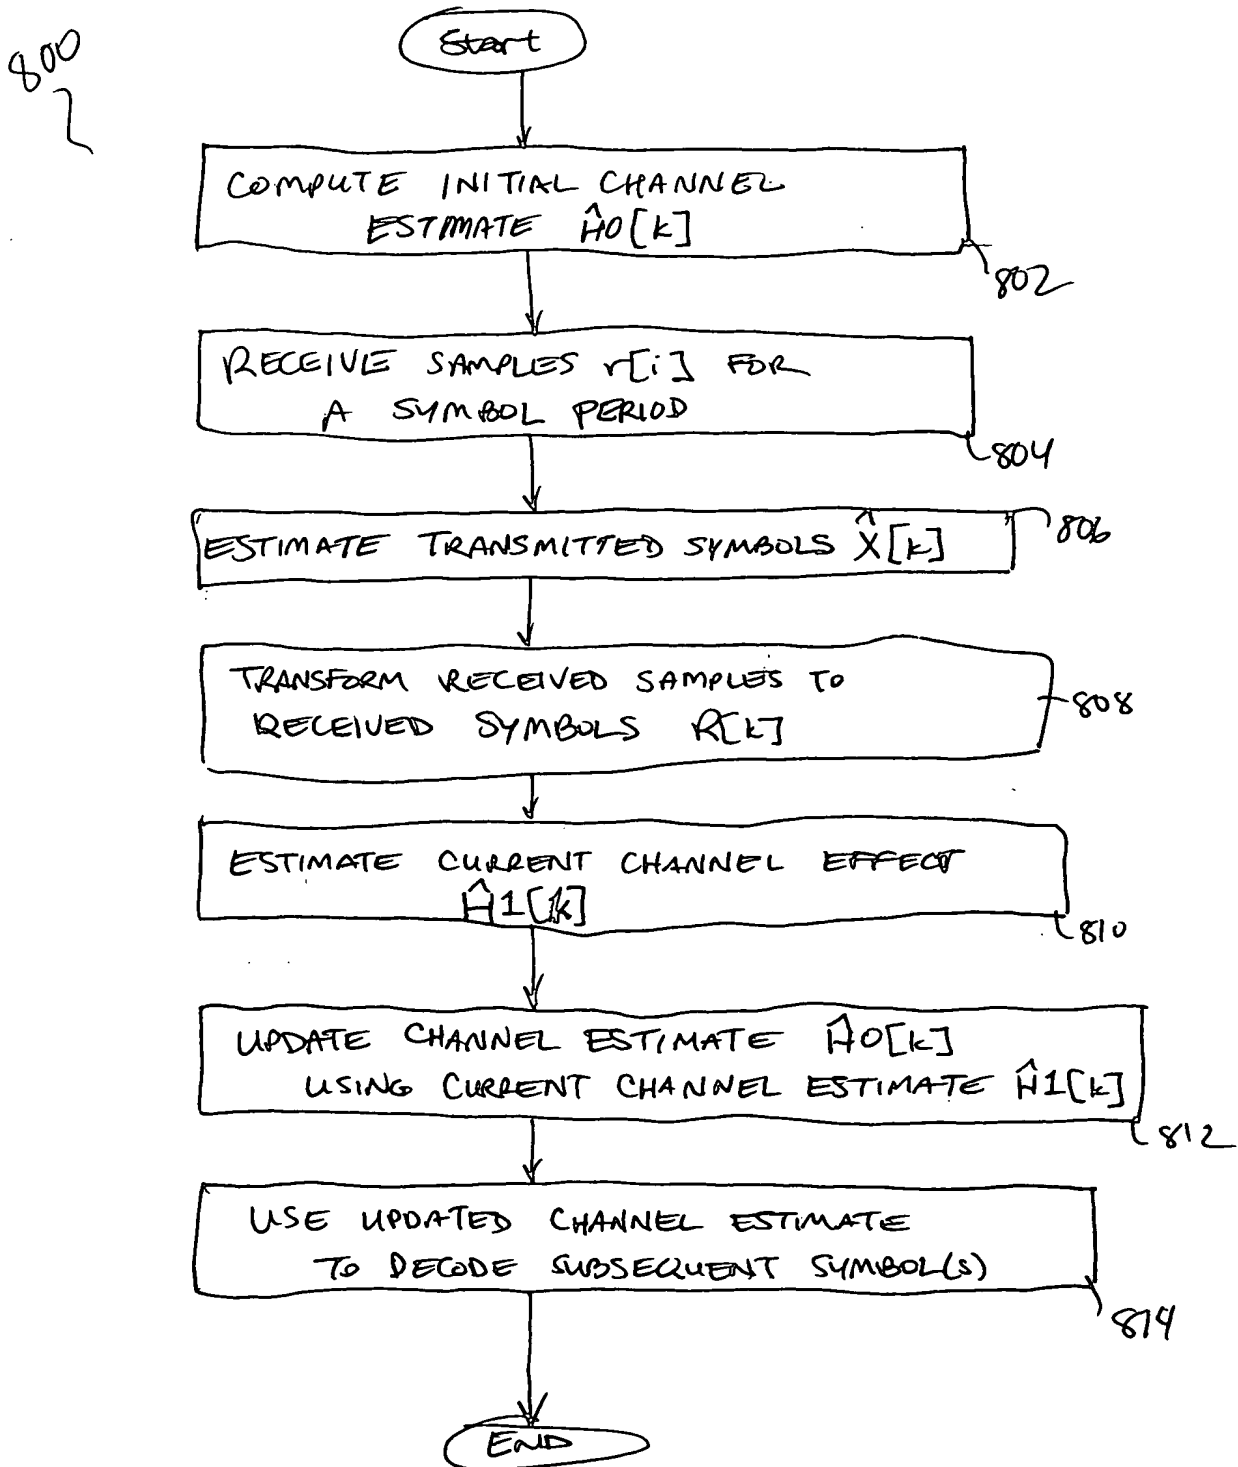 800
Start
COMPUTE INITIAL CHANNEL
ESTIMATE Ĥ0[k]
802
RECEIVE SAMPLES r[i] FOR
A SYMBOL PERIOD
804
ESTIMATE TRANSMITTED SYMBOLS X̂[k]
806
TRANSFORM RECEIVED SAMPLES TO
RECEIVED SYMBOLS R[k]
808
ESTIMATE CURRENT CHANNEL EFFECT
Ĥ1[k]
810
UPDATE CHANNEL ESTIMATE Ĥ0[k]
USING CURRENT CHANNEL ESTIMATE Ĥ1[k]
812
USE UPDATED CHANNEL ESTIMATE
TO DECODE SUBSEQUENT SYMBOL(S)
814
END